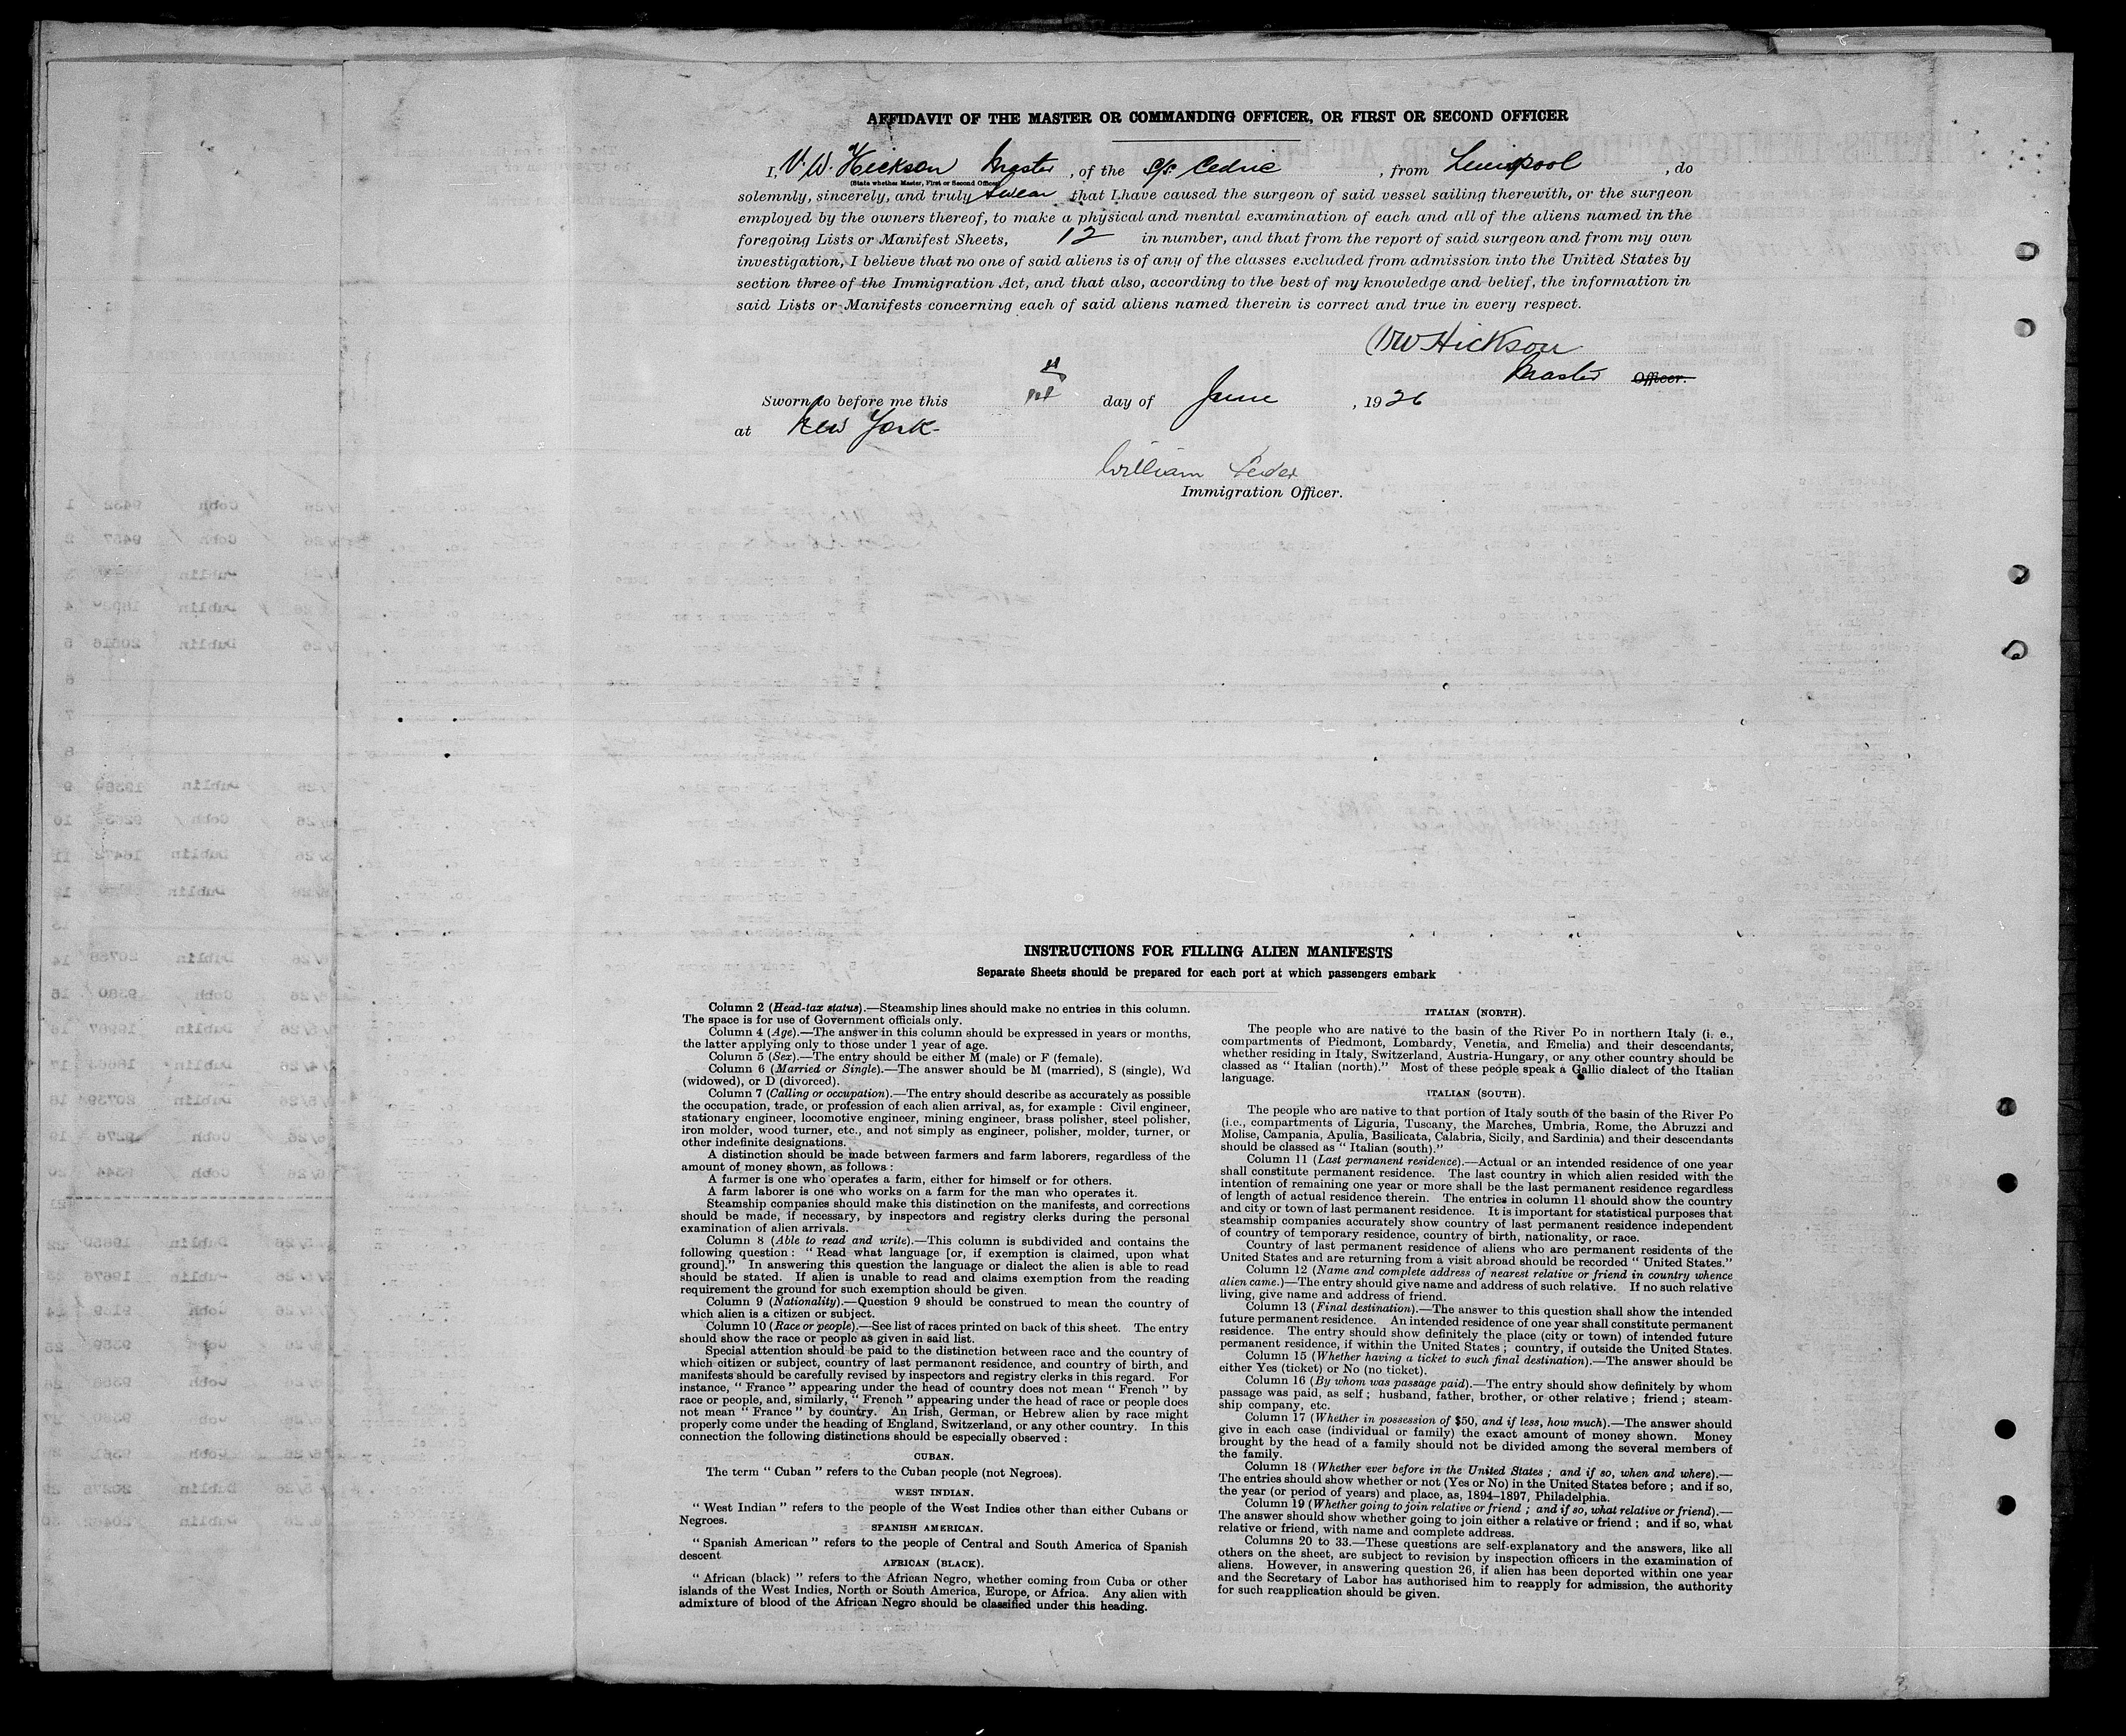 AFFIDAVIT OF THE MASTER OR COMMANDING OFFICER, OR FIRST OR SECOND OFFICER
I, V. W. Hickson Master , of the S/S. Cedric , from Liverpool , do
(State whether Master, First or Second Officer)
solemnly, sincerely, and truly swear that I have caused the surgeon of said vessel sailing therewith, or the surgeon
employed by the owners thereof, to make a physical and mental examination of each and all of the aliens named in the
foregoing Lists or Manifest Sheets, 12 in number, and that from the report of said surgeon and from my own
investigation, I believe that no one of said aliens is of any of the classes excluded from admission into the United States by
section three of the Immigration Act, and that also, according to the best of my knowledge and belief, the information in
said Lists or Manifests concerning each of said aliens named therein is correct and true in every respect.
VW Hickson
Master Officer.
Sworn to before me this 1st day of June , 1926
at New York-
William
Immigration Officer.
INSTRUCTIONS FOR FILLING ALIEN MANIFESTS
Separate Sheets should be prepared for each port at which passengers embark
Column 2 (Head-tax status).—Steamship lines should make no entries in this column.
The space is for use of Government officials only.
Column 4 (Age).—The answer in this column should be expressed in years or months,
the latter applying only to those under 1 year of age.
Column 5 (Sex).—The entry should be either M (male) or F (female).
Column 6 (Married or Single).—The answer should be M (married), S (single), Wd
(widowed), or D (divorced).
Column 7 (Calling or occupation).—The entry should describe as accurately as possible
the occupation, trade, or profession of each alien arrival, as, for example : Civil engineer,
stationary engineer, locomotive engineer, mining engineer, brass polisher, steel polisher,
iron molder, wood turner, etc., and not simply as engineer, polisher, molder, turner, or
other indefinite designations.
A distinction should be made between farmers and farm laborers, regardless of the
amount of money shown, as follows :
A farmer is one who operates a farm, either for himself or for others.
A farm laborer is one who works on a farm for the man who operates it.
Steamship companies should make this distinction on the manifests, and corrections
should be made, if necessary, by inspectors and registry clerks during the personal
examination of alien arrivals.
Column 8 (Able to read and write).—This column is subdivided and contains the
following question : " Read what language [or, if exemption is claimed, upon what
ground]." In answering this question the language or dialect the alien is able to read
should be stated. If alien is unable to read and claims exemption from the reading
requirement the ground for such exemption should be given.
Column 9 (Nationality).—Question 9 should be construed to mean the country of
which alien is a citizen or subject.
Column 10 (Race or people).—See list of races printed on back of this sheet. The entry
should show the race or people as given in said list.
Special attention should be paid to the distinction between race and the country of
which citizen or subject, country of last permanent residence, and country of birth, and
manifests should be carefully revised by inspectors and registry clerks in this regard. For
instance, " France " appearing under the head of country does not mean " French " by
race or people, and, similarly, " French " appearing under the head of race or people does
not mean " France " by country. An Irish, German, or Hebrew alien by race might
properly come under the heading of England, Switzerland, or any other country. In this
connection the following distinctions should be especially observed :
CUBAN.
The term " Cuban " refers to the Cuban people (not Negroes).
WEST INDIAN.
" West Indian " refers to the people of the West Indies other than either Cubans or
Negroes.
SPANISH AMERICAN.
" Spanish American " refers to the people of Central and South America of Spanish
descent
AFRICAN (BLACK).
" African (black) " refers to the African Negro, whether coming from Cuba or other
islands of the West Indies, North or South America, Europe, or Africa. Any alien with
admixture of blood of the African Negro should be classified under this heading.
ITALIAN (NORTH).
The people who are native to the basin of the River Po in northern Italy (i. e.,
compartments of Piedmont, Lombardy, Venetia, and Emelia) and their descendants,
whether residing in Italy, Switzerland, Austria-Hungary, or any other country should be
classed as " Italian (north)." Most of these people speak a Gallic dialect of the Italian
language.
ITALIAN (SOUTH).
The people who are native to that portion of Italy south of the basin of the River Po
(i.e., compartments of Liguria, Tuscany, the Marches, Umbria, Rome, the Abruzzi and
Molise, Campania, Apulia, Basilicata, Calabria, Sicily, and Sardinia) and their descendants
should be classed as " Italian (south)."
Column 11 (Last permanent residence).—Actual or an intended residence of one year
shall constitute permanent residence. The last country in which alien resided with the
intention of remaining one year or more shall be the last permanent residence regardless
of length of actual residence therein. The entries in column 11 should show the country
and city or town of last permanent residence. It is important for statistical purposes that
steamship companies accurately show country of last permanent residence independent
of country of temporary residence, country of birth, nationality, or race.
Country of last permanent residence of aliens who are permanent residents of the
United States and are returning from a visit abroad should be recorded " United States."
Column 12 (Name and complete address of nearest relative or friend in country whence
alien came.)—The entry should give name and address of such relative. If no such relative
living, give name and address of friend.
Column 13 (Final destination).—The answer to this question shall show the intended
future permanent residence. An intended residence of one year shall constitute permanent
residence. The entry should show definitely the place (city or town) of intended future
permanent residence, if within the United States ; country, if outside the United States.
Column 15 (Whether having a ticket to such final destination).—The answer should be
either Yes (ticket) or No (no ticket).
Column 16 (By whom was passage paid).—The entry should show definitely by whom
passage was paid, as self ; husband, father, brother, or other relative ; friend ; steam-
ship company, etc.
Column 17 (Whether in possession of $50, and if less, how much).—The answer should
give in each case (individual or family) the exact amount of money shown. Money
brought by the head of a family should not be divided among the several members of
the family.
Column 18 (Whether ever before in the United States ; and if so, when and where).—
The entries should show whether or not (Yes or No) in the United States before ; and if so,
the year (or period of years) and place, as, 1894–1897, Philadelphia.
Column 19 (Whether going to join relative or friend ; and if so, what relative or friend).—
The answer should show whether going to join either a relative or friend ; and if so, what
relative or friend, with name and complete address.
Columns 20 to 33.—These questions are self-explanatory and the answers, like all
others on the sheet, are subject to revision by inspection officers in the examination of
aliens. However, in answering question 26, if alien has been deported within one year
and the Secretary of Labor has authorised him to reapply for admission, the authority
for such reapplication should be given.